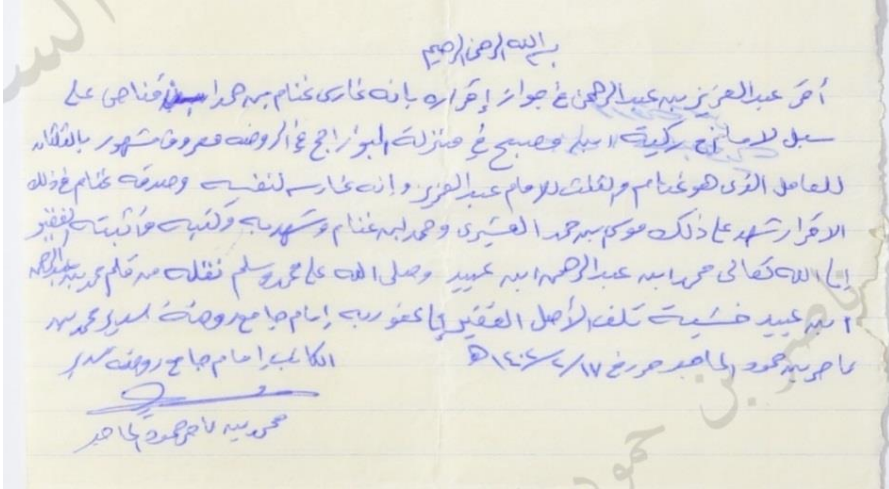 بسم الله الرحمن الرحيم
أقر عبدالعزيز بن عبدالرحمن في جواز إقراره بانه غارس غنام بن حمد قناص على
سبل لامام في ركية ابن مصبح في منزلة البواز اجح في الروضه معروف مشهور بالثلثان
للعامل الذي هو غنام والثلث للامام عبدالعزيز وانه غارسه لنفسه وصدقه غنام في ذلك
الاقرار شهد على ذلك موسى بن حمد العسيري وحمد بن غنام وشهد به وكتبه وأثبته الفقير
إلى الله تعالى محمد ابن عبدالرحمن ابن عبيد وصلى الله على محمد وسلم نقله من قلم محمد بن عبدالرحمن
ابن عبيد خشية تلف الأصل الفقير إلى عفو ربه إمام جامع روضة سدير محمد بن
ناصر بن حمود الماجد حرر في ١٤٠٤/٢/١٧هـ الكاتب إمام جامع روضة سدير
محمد بن ناصر حمود الماجد
ناصر بن حمود